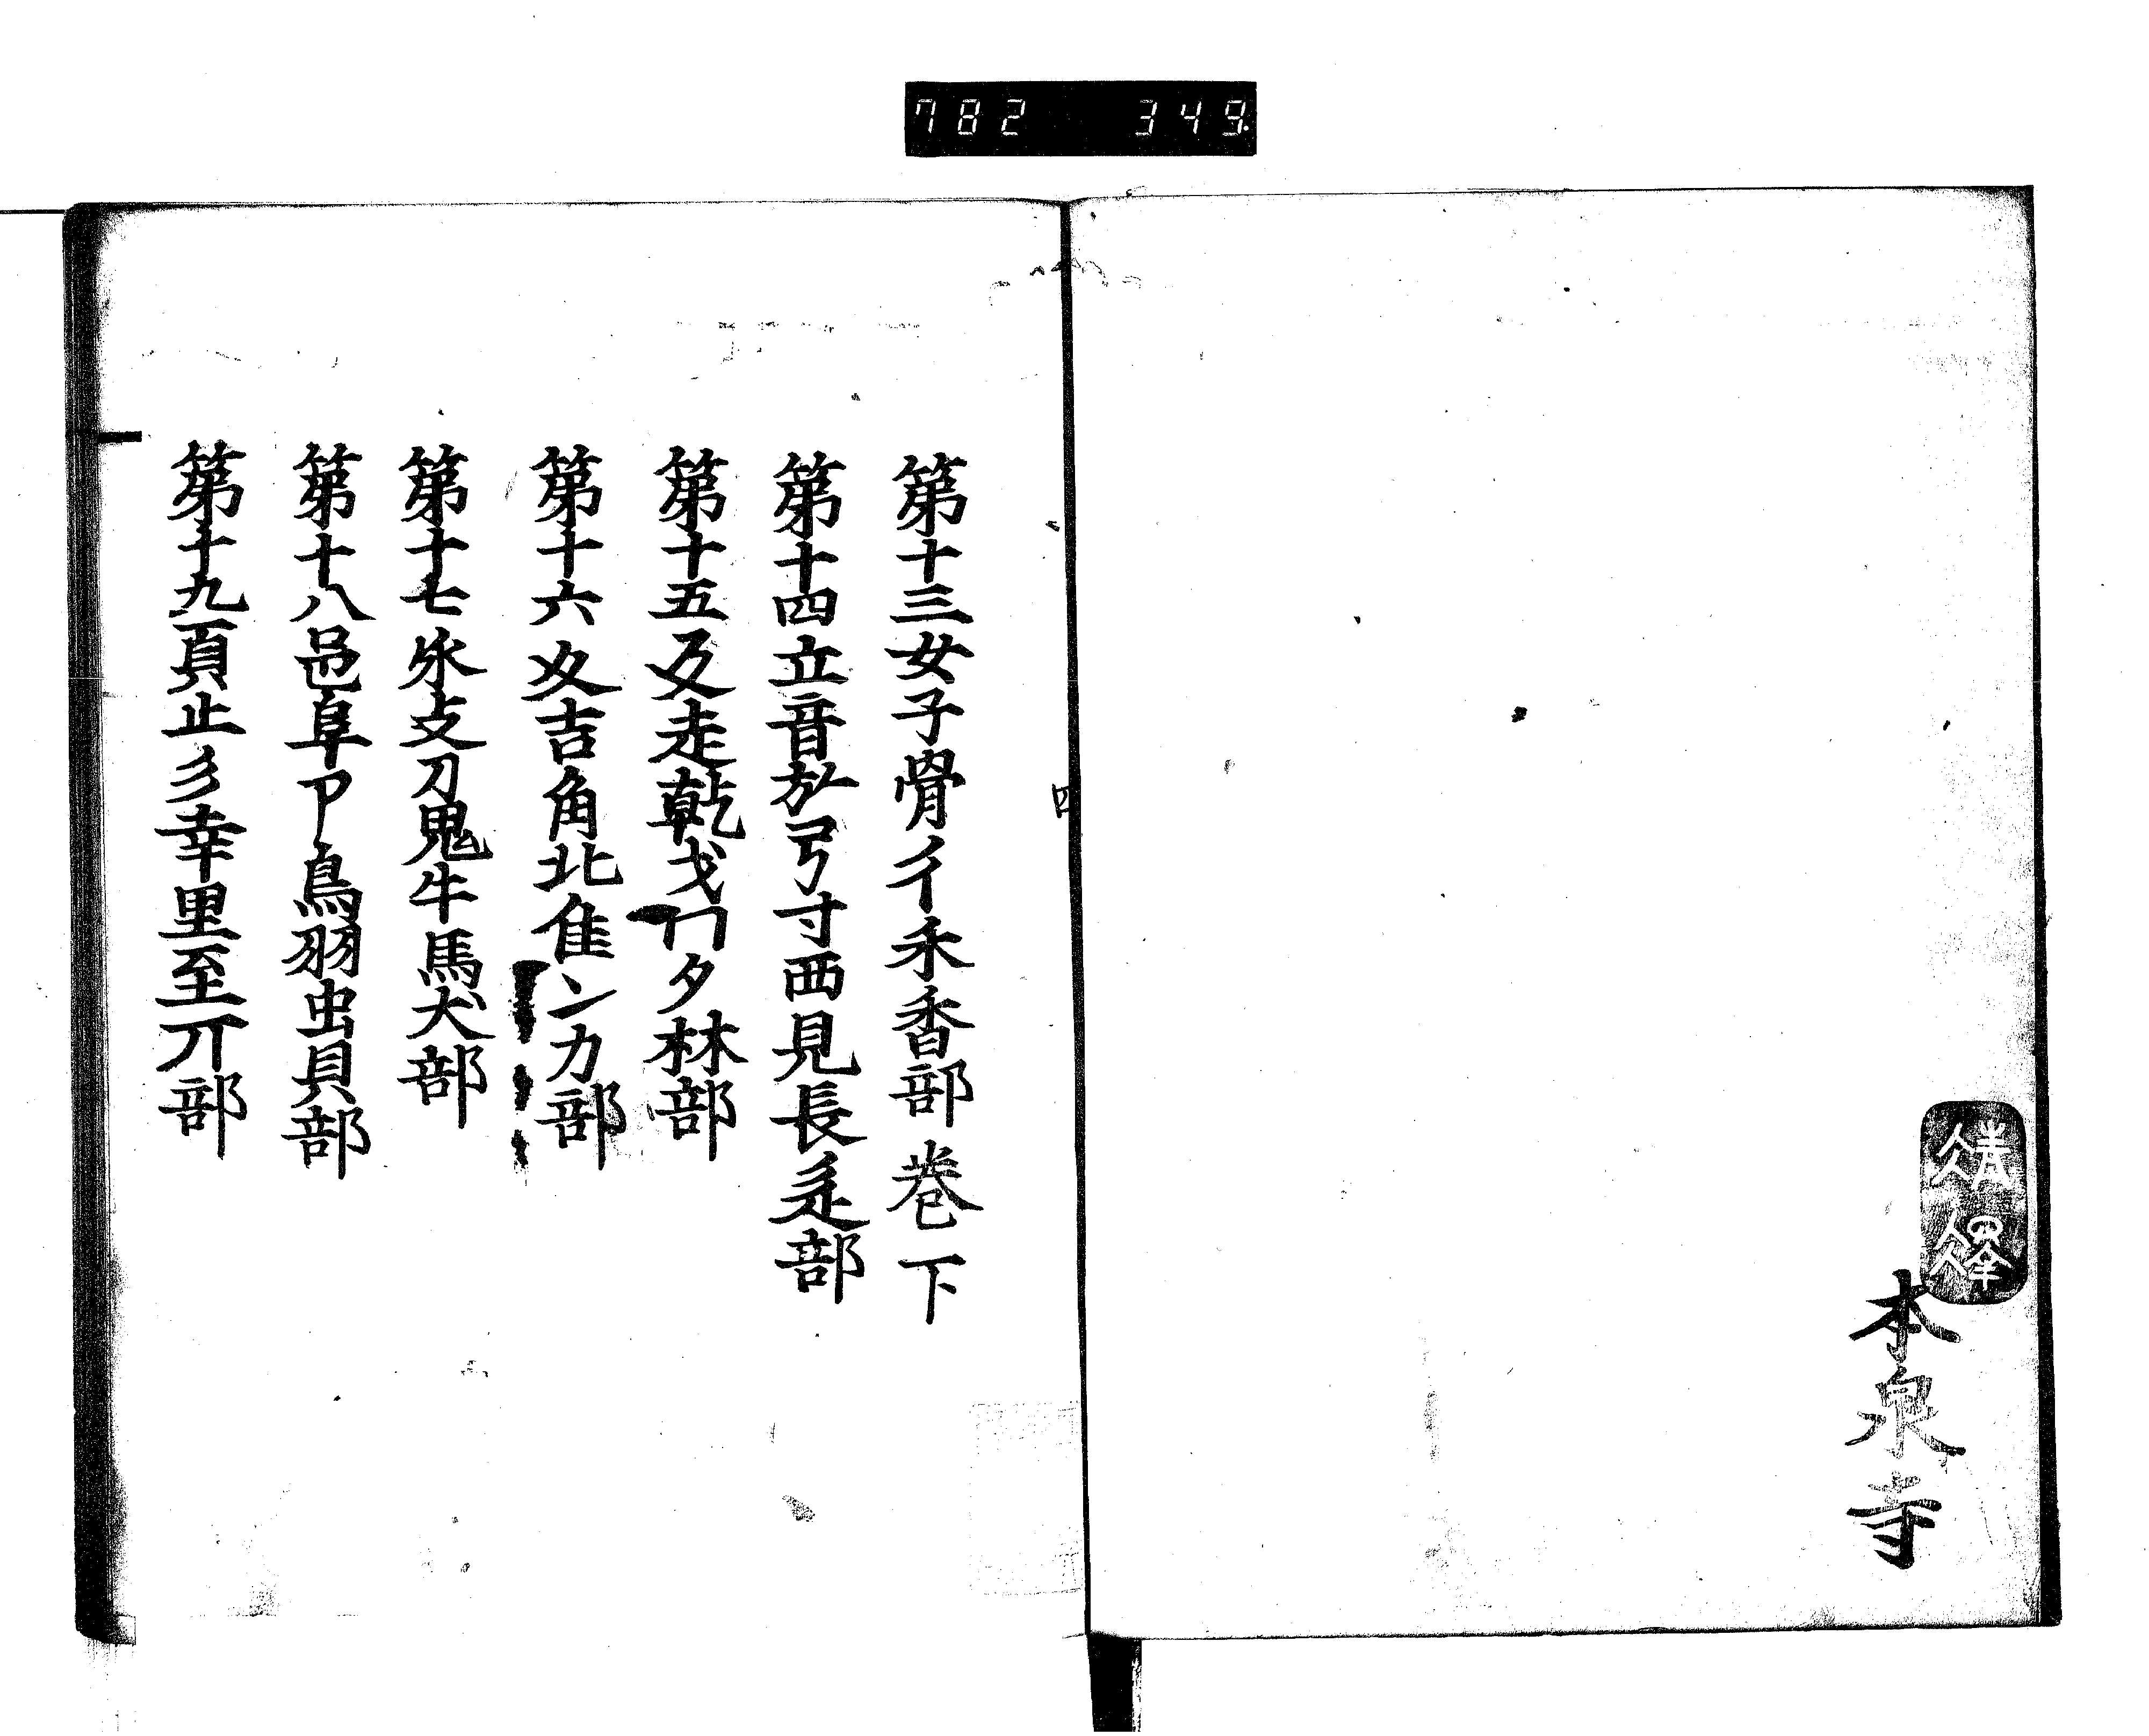 782 349.
本泉寺
第十三女子骨彳禾香部 巻下
第十四立音㫃弓寸西見長辵部
第十五夂走乹戈冂夕林部
第十六文吉角北隹冫力部
第十七𣲖支刀鬼牛馬犬部
第十八邑阜卩鳥羽虫貝部
第十九頁止彡幸里至丌部
四